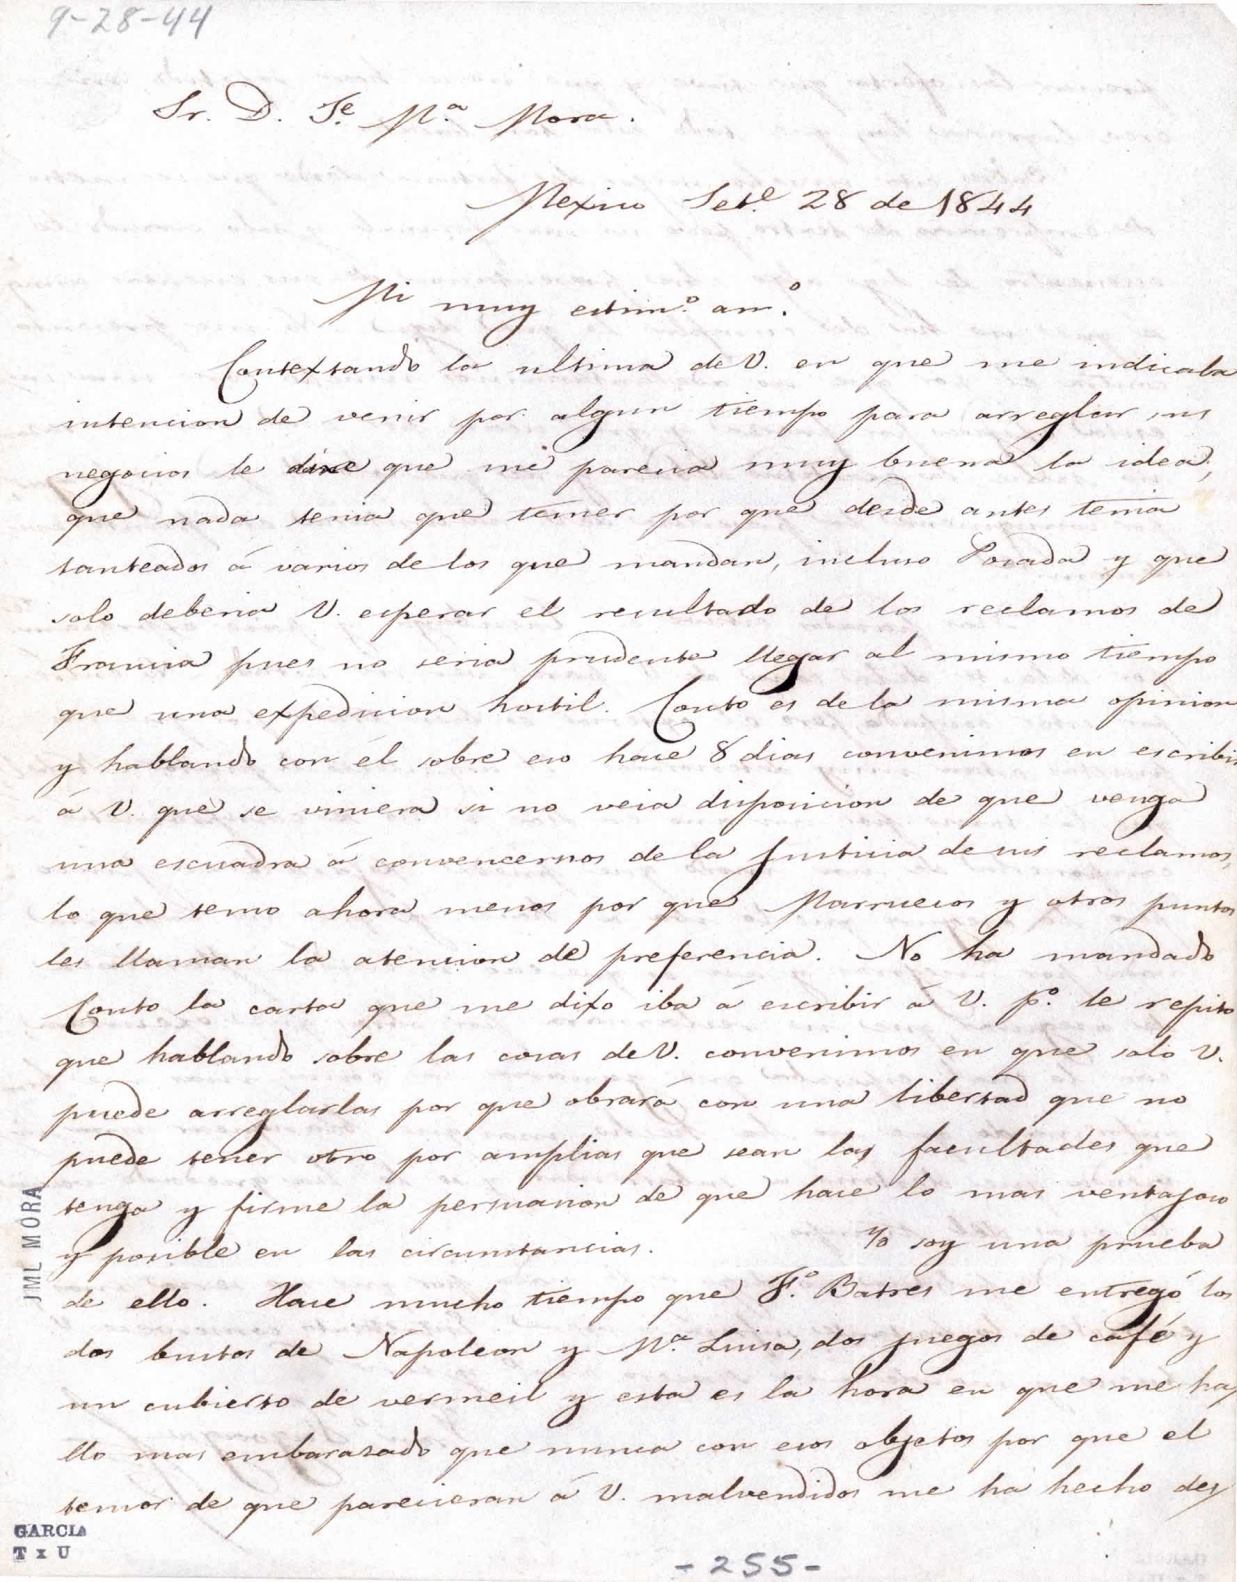 9-28-44
Sr. D. Je. Ma. Mora.
Mexico Sete. 28 de 1844
Mi muy estimo. amo.
Contextando la ultima de V. en que me indica la
intencion de venir por algun tiempo para arreglar sus
negocios le dixe que me parecia muy buena la idea;
que nada tenia que temer por que desde antes tenia
tanteados á varios de los que mandan, incluso Posada y que
solo deberia V. esperar el resultado de los reclamos de
Francia pues no seria prudente llegar al mismo tiempo
que una expedicion hostil. Couto es de la misma opinion
y hablando con él sobre eso hace 8 dias convenimos en escribir
á V. que se viniera si no veia disposicion de que venga
una escuadra á convencernos de la Justicia de sus reclamos,
lo que temo ahora menos por que Marruecos y otros puntos
les llaman la atencion de preferencia. No ha mandado
Couto la carta que me dixo iba á escribir á V. po. le repito
que hablando sobre las cosas de V. convenimos en que solo V.
puede arreglarlas por que obrará con una libertad que no
puede tener otro por amplias que sean las facultades que
tenga y firme la persuasion de que hace lo mas ventajoso
y posible en las circunstancias. Yo soy una prueba
de ello. Hace mucho tiempo que Fo. Batres me entregó los
dos bustos de Napoleon y Ma. Luisa, dos juegos de café y
un cubierto de vermeil y esta es la hora en que me ha
llo mas embarazado que nunca con esos objetos por que el
temor de que parecieran á V. malvendidos me ha hecho des
JML MORA
GARCIA
T x U
-255-